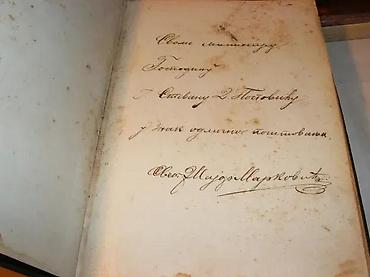 Своме министру
Господину
Г Стевану Д. Поповићу
у знак одличног поштовања
Свет. Марковић